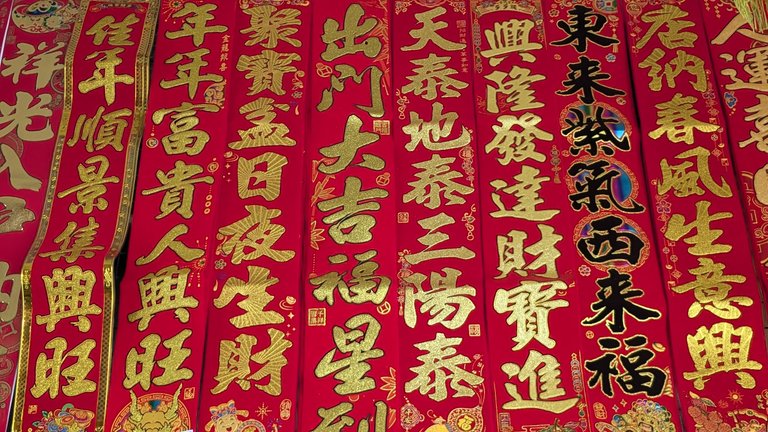 店納春風生意興
東來紫氣西來福
興隆發達財寶進
天泰地泰三陽泰
出門大吉福星到
聚寶盆日夜生財
年年富貴人興旺
佳年順景集興旺
祥光入